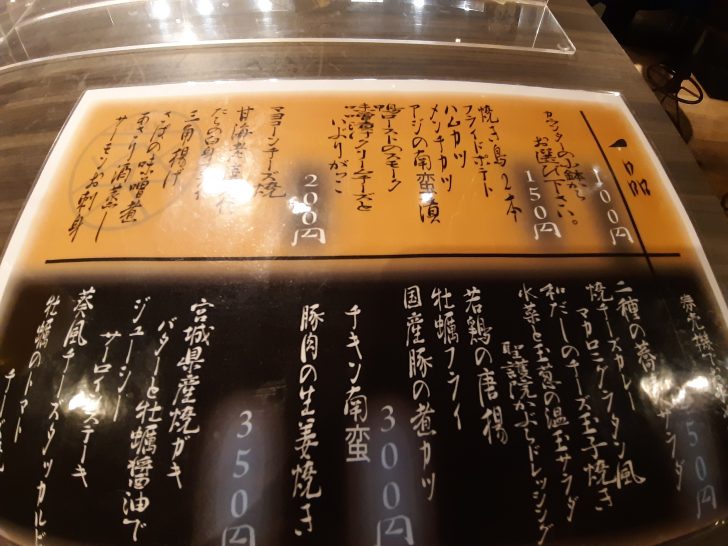 一品
100円
カウンターの小鉢から
お選び下さい。
150円
焼き鳥2本
フライドポテト
ハムカツ
メンチカツ
アジの南蛮漬
鴨ローストのスモーク
クリームチーズと
いぶりがっこ
200円
マヨコーンチーズ焼
甘海老
たらの白身
三角揚げ
さばの味噌煮
あさり酒蒸し
サーモンお刺身
50円
サラダ
二種の
焼チーズカレー
マカロニグラタン風
和だしのチーズ玉子焼き
水菜と玉葱の温玉サラダ
聖護院かぶらドレッシング
若鶏の唐揚
牡蠣フライ
国産豚の煮カツ
300円
チキン南蛮
豚肉の生姜焼き
350円
宮城県産焼ガキ
バターと牡蠣醤油で
ジューシー
サーロインステーキ
葵風チーズタッカルビ
牡蠣のトマト
チーズ